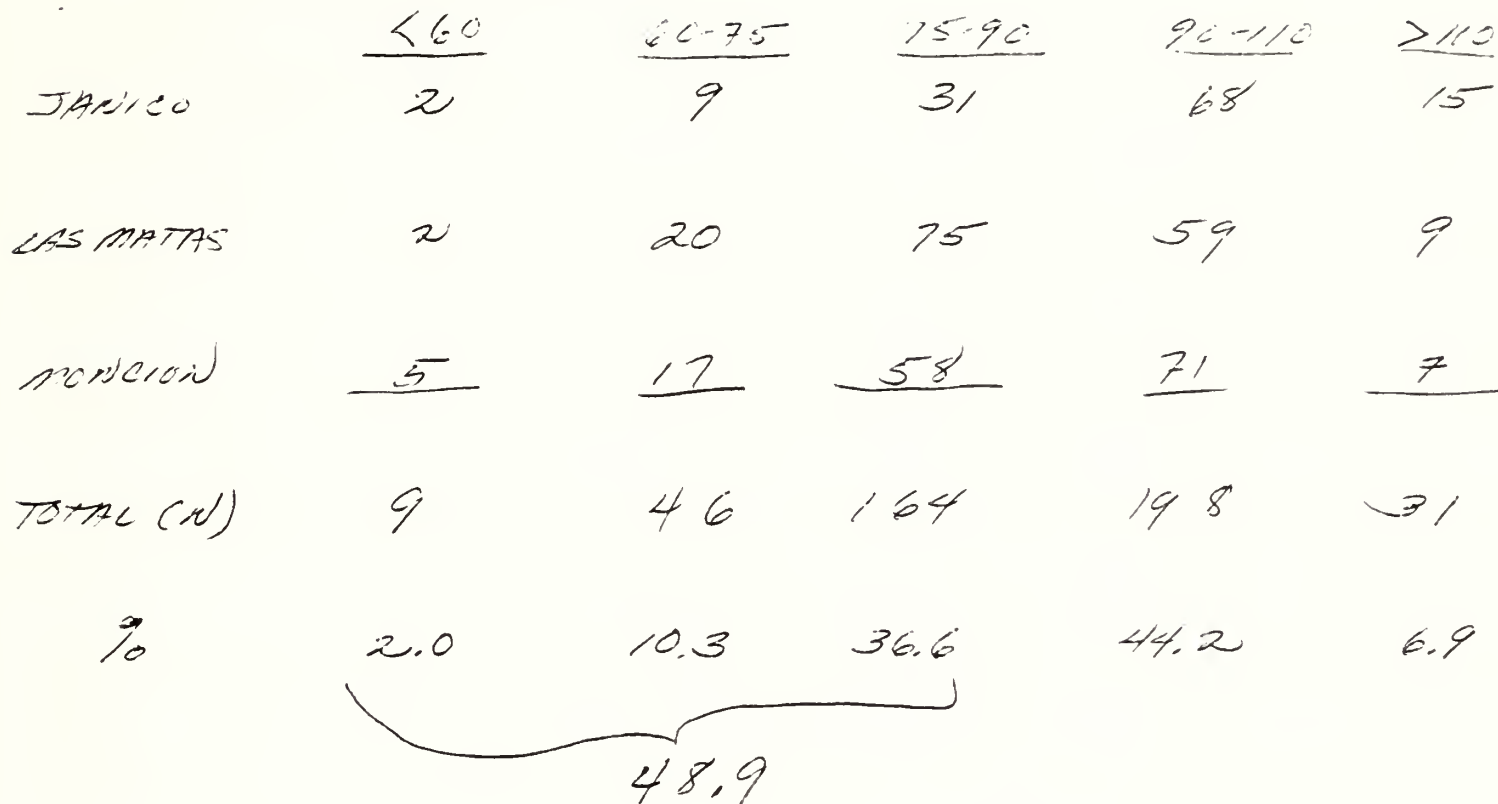 <60 60-75 75-90 90-110 >110
JANICO 2 9 31 68 15
LAS MATAS 2 20 75 59 9
MONCION 5 17 58 71 7
TOTAL (N) 9 46 164 198 31
% 2.0 10.3 36.6 44.2 6.9
48.9